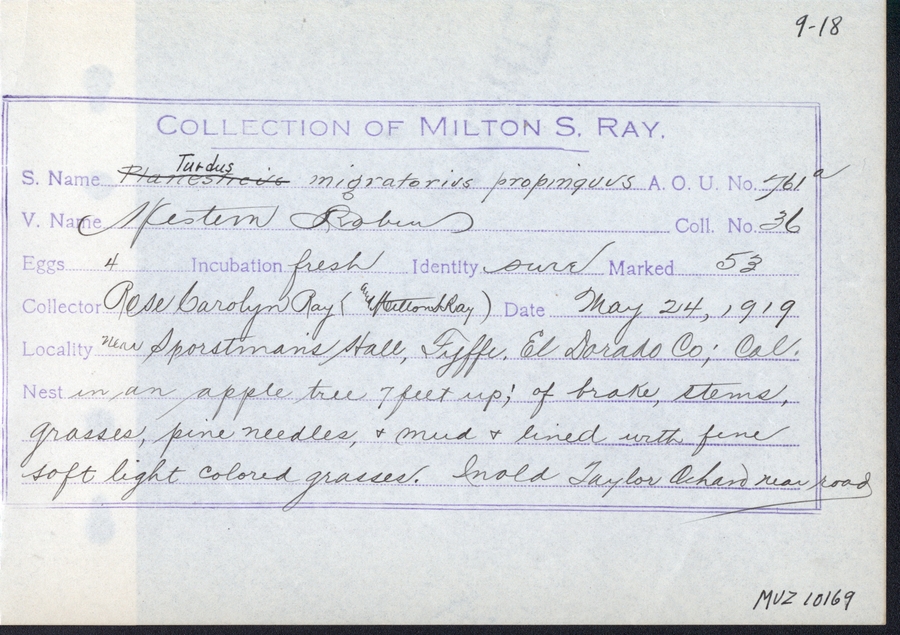 9-18
COLLECTION OF MILTON S. RAY.
Turdus
S. Name Planesticus migratorius propinquus A. O. U. No. 761a
V. Name Western Robin Coll. No. 36
Eggs 4 Incubation fresh Identity sure Marked 53
Collector Rose Carolyn Ray ( Milton S Ray ) Date May 24, 1919
Locality near Sporstmans Hall, Fyffe, El Dorado Co; Cal.
Nest in an apple tree 7 feet up; of brake, stems,
grasses, pine needles, & mud & lined with fine
soft light colored grasses. In old Taylor Ochard near road
MVZ 10169